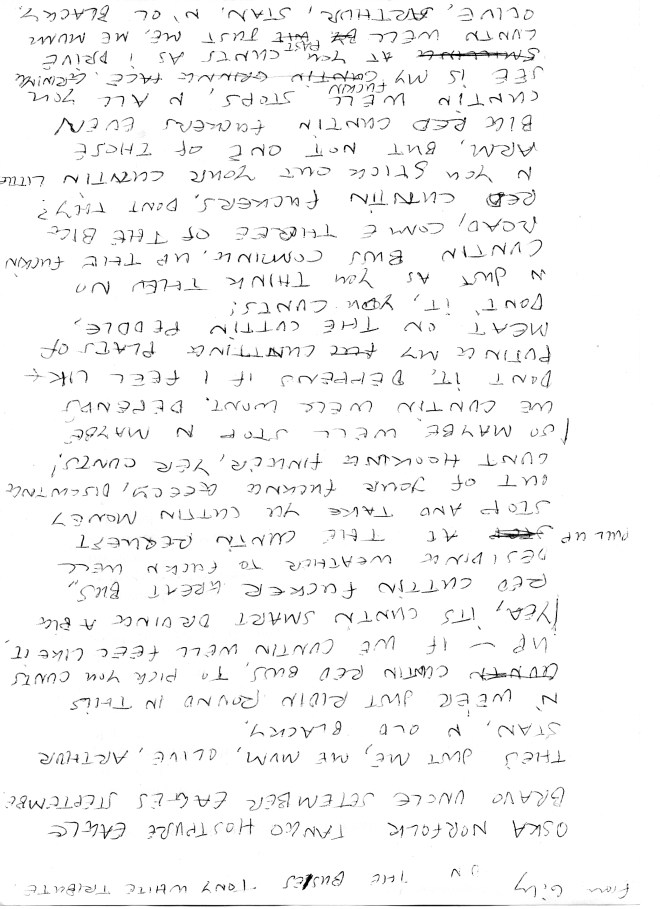 From Gily ON THE BUSES. TONY WHITE TRIBUTE
OSKA NORFOLK TANGO HOSTPURE EAGLE
BRAVO UNCLE SETEMBER EAGLES SEPTEMBE
THES JUST ME, ME MUM, OLIVE, ARTHUR
STAN, N OLD BLACKY.
N WEER JUST RIDIN ROUND IN THIS
CUNTIN RED BUS, TO PICK YOU CUNTS
UP — IF WE CUNTIN WELL FEEL LIKE IT.
YEA, ITS CUNTIN SMART DRIVING A BIG
RED CUTTIN FUCKER GREAT BUS,,
DESIDING WEATHER TO FUCKN WELL
PULL UP AT THE CUNTIN REQUEST
STOP AND TAKE YU CUTTIN MONEY
OUT OF YOUR FUCKING GREECY, DISCUTING
CUNT HOOKING FINGER, YER, CUNTS!
SO MAYBE WELL STOP N MAYBE
WE CUNTIN WELL WONT. DEPENDS
DONT IT, DEPPENS IF I FEEL LIKE
PUTING MY CUNTTING PLATES OF
MEAT ON THE CUTTIN PEDDLE,
DONT, IT, YOU CUNTS!
N JUST AS YOU THINK THERS NO
CUNTIN BUS COMING, UP THE FUCKIN
ROAD, COME THREE OF THE BIG
RED CUNTIN FUCKERS, DONT THEY?
N YOU STICK OUT YOUR CUNTIN LITTLE
ARM, BUT NOT ONE OF THOSE
BIG RED CUNTIN FUCKERS EVEN
CUNTIN WELL STOPS, N ALL YOU
SEE IS MY FUCKIN FACE GRINING
AT YOU CUNTS AS I DRIVE
CUNTN WELL PAST JUST ME, ME MUM
OLIVE, ARTHUR, STAN, N OL BLACKY,